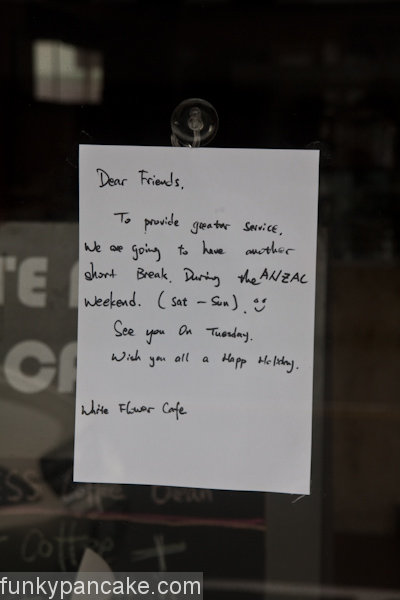 Dear Friends,
To provide greater service,
We are going to have another
short Break. During the ANZAC
weekend. (Sat - Sun). ツ
See you On Tuesday.
Wish you all a Happ Holiday.
White Flower Cafe
TE
CA
SS Coffee Bean
Coffee +
funkypancake.com